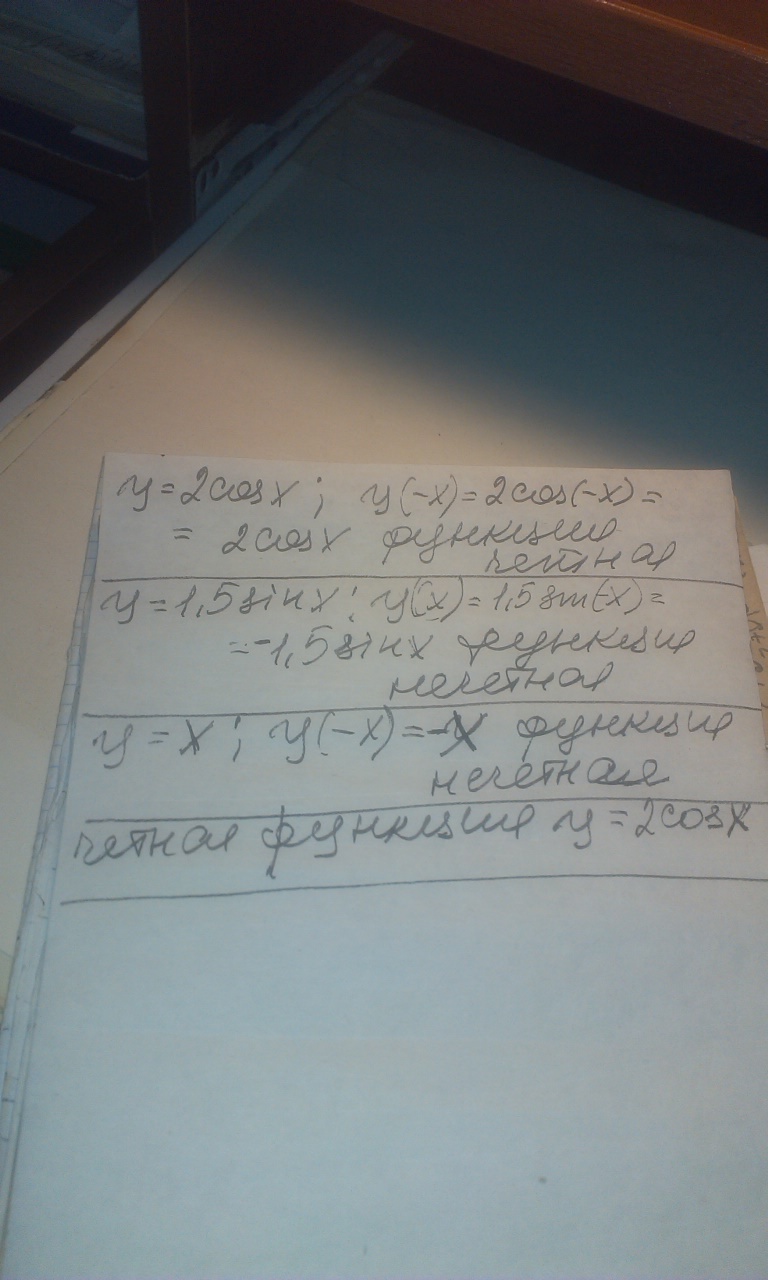 y=2cosx; y(-x)=2cos(-x)=
= 2cosx функция
четная
y=1,5sinx; y(-x)=1,5sin(-x)=
=-1,5sinx функция
нечетная
y=x; y(-x)=-x функция
нечетная
четная функция y=2cosx